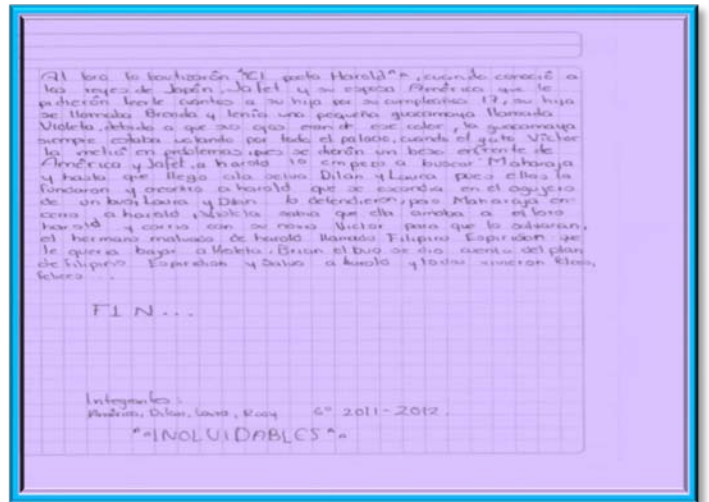 Al loro lo bautizarón "El poeta Harold"^, cuando conoció a
los reyes de Japón, Jafet y su esposa América que le
pidierón leerle cuentos a su hija por su cumpleaños 17, su hija
se llamaba Brenda y tenía una pequeña guacamaya llamada
Violeta, debido a que sus ojos eran de ese color, la guacamaya
siempre estaba volando por todo el palacio, cuando el gato Víctor
la metió en problemas, pues se dierón un beso enfrente de
América y Jafet, a harold lo empezo a buscar Maharaja
y hasta que llego a la selva Dilan y Laura pues ellos la
fundaron y encontro a harold que se escondia en el agujero
de un buo, Laura y Dilan lo defendieron, pero Maharaja en-
cerro a harold, Violeta sabia que ella amaba a el loro
harold y corrio con su novio Victor para que lo salvaran,
el hermano malvado de harold llamado Filipino Espiridion que
le queria bajar a Violeta. Brian el buo se dio cuenta del plan
de Filipino Espiridion y Salvo a harold y todos vivieron felices,
felices ...
FIN...
Integrantes:
América, Dilan, Laura, Rosy 6° 2011-2012.
"^INOLVIDABLES^"